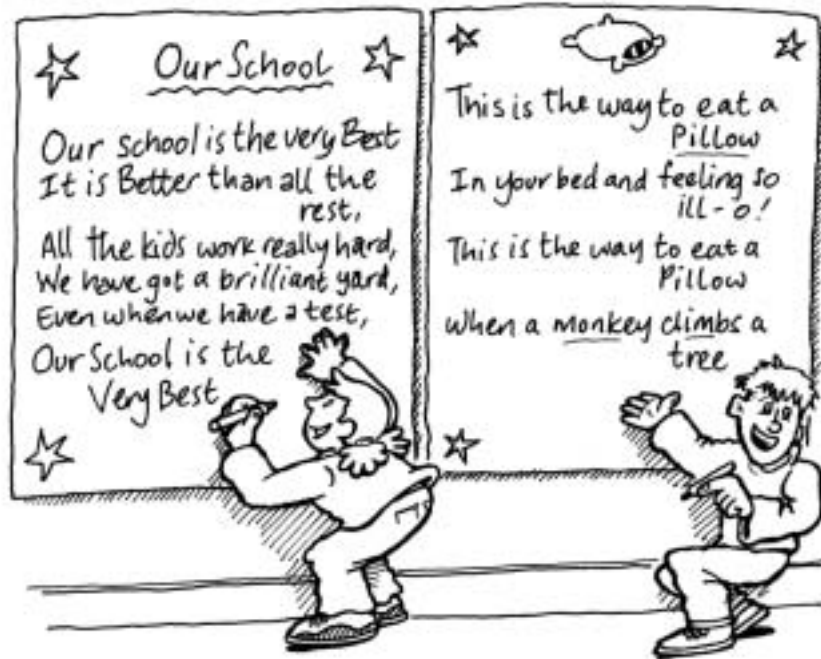 Our School
Our school is the very Best
It is Better than all the
rest,
All the kids work really hard,
We have got a brilliant yard,
Even when we have a test,
Our School is the
Very Best
This is the way to eat a
Pillow
In your bed and feeling so
ill-o!
This is the way to eat a
Pillow
when a monkey climbs a
tree